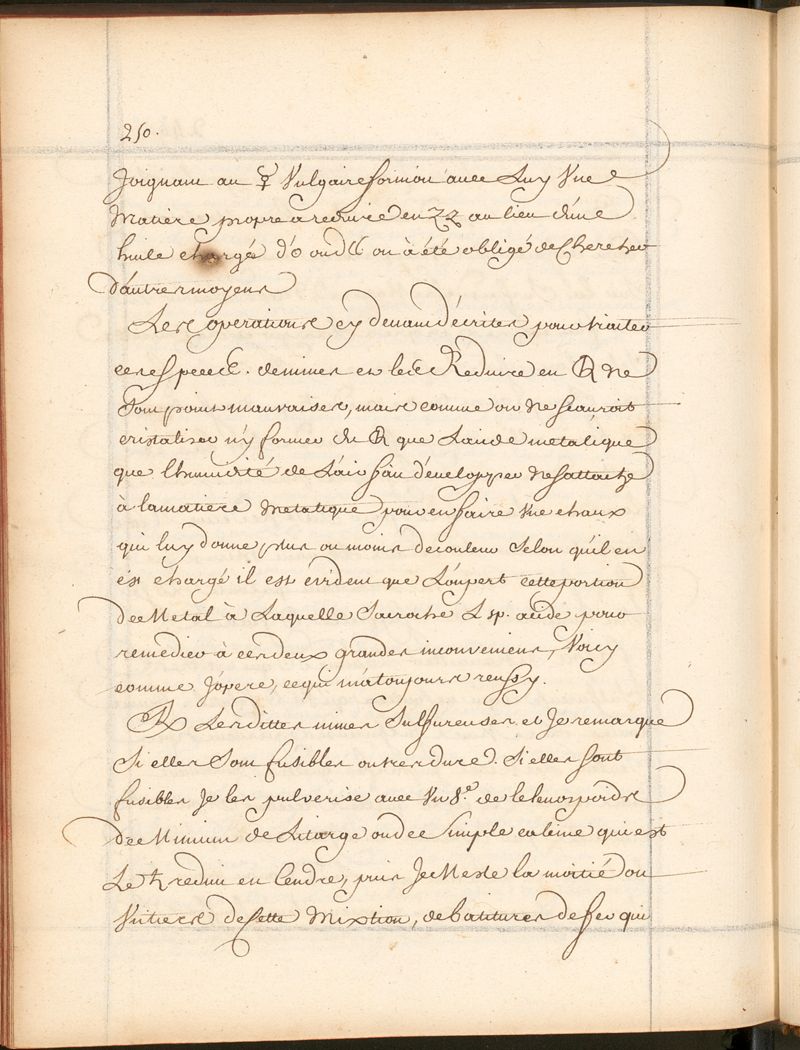 250.
Joignant au ☿ Vulgaire sinon avec Luy Vne
Matiere propre a reduire en ♃♃ au lieu d'une
huile chargée d'o ou d' on à été obligé de Chercher
d'autres moyens
Les operations cy devant décrites pour traiter
ces especes. de mines et les Reduire en ne
Sont point mauvaises, mais comme on ne scauroit
cristaliser n'y former du que L'aide metalique
que l'humidité de L'air fait développer ne sattache
à la matiere Metalique pour en faire Vne chaux
qui luy donne plus ou moins de couleur Selon qu'il en
ést chargé il est évident que L'on pert cette portion
de Metal à Laquelle Sacroche L sp. acide pour
remedier à ces deux grandes inconveniens, Voicy
comme J'opere, ce qui m'a toujours reussy.
Les dittes mines Sulfureuses et Je remarque
Si elles Sont fusibles ou tres dure. Si elles sont
fusibles Je les pulverise avec Vn 8.e de leur poids
de Minium de Litarge ou de Simple calciné qui est
Le ♄ reduit en Cendre, puis Je Mesle la moitié ou
Vn tiers de Cette Mixtion, de batitures de fer qui